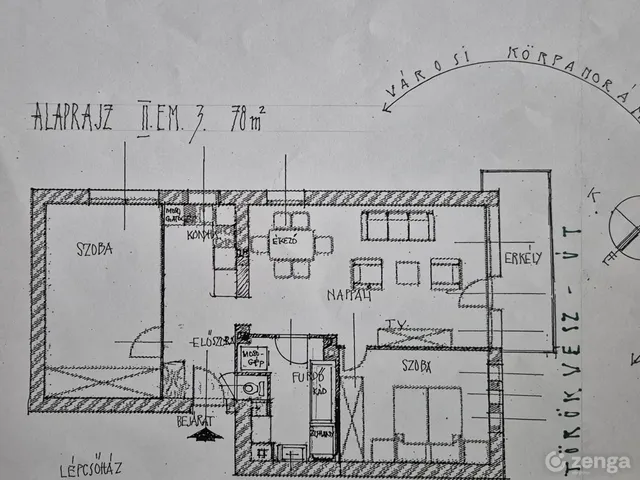 VÁROSI KÖRPANORÁM
ALAPRAJZ II. EM. 3. 78 m²
K
SZOBA
MOS.
KONYHA
ÉTKEZŐ
ERKÉLY
NAPPALI
TÖRÖKVÉSZ-ÚT
T.V.
ELŐSZOBA
MOSÓ-
GÉP
FÜRDŐ
KÁD
ZUHANY
SZOBA
BEJÁRAT
LÉPCSŐHÁZ
zenga